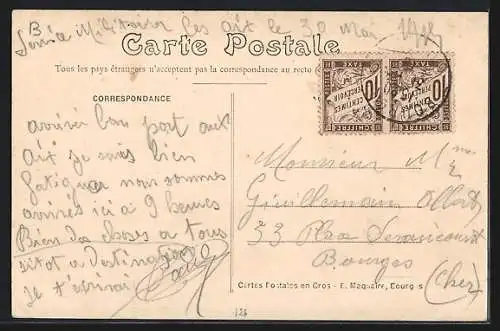 Service Militaire les aix le 30 mai
Carte Postale
Tous les pays étrangers n'acceptent pas la correspondance au recto
CORRESPONDANCE
arrivé bon port aux
aix je suis bien
fatiguer nous sommes
arrivés ici à 9 heures
Bien des choses a tous
sitot a Destination
je t'ecrirai
10
CENTIMES
A
PERCEVOIR
CHIFFRE
TAXE
10
CENTIMES
A
PERCEVOIR
CHIFFRE
TAXE
Monsieur
Guillemain
33 Place
Bourges
(Cher)
Cartes Postales en Gros - E. Maquaire, Bourges